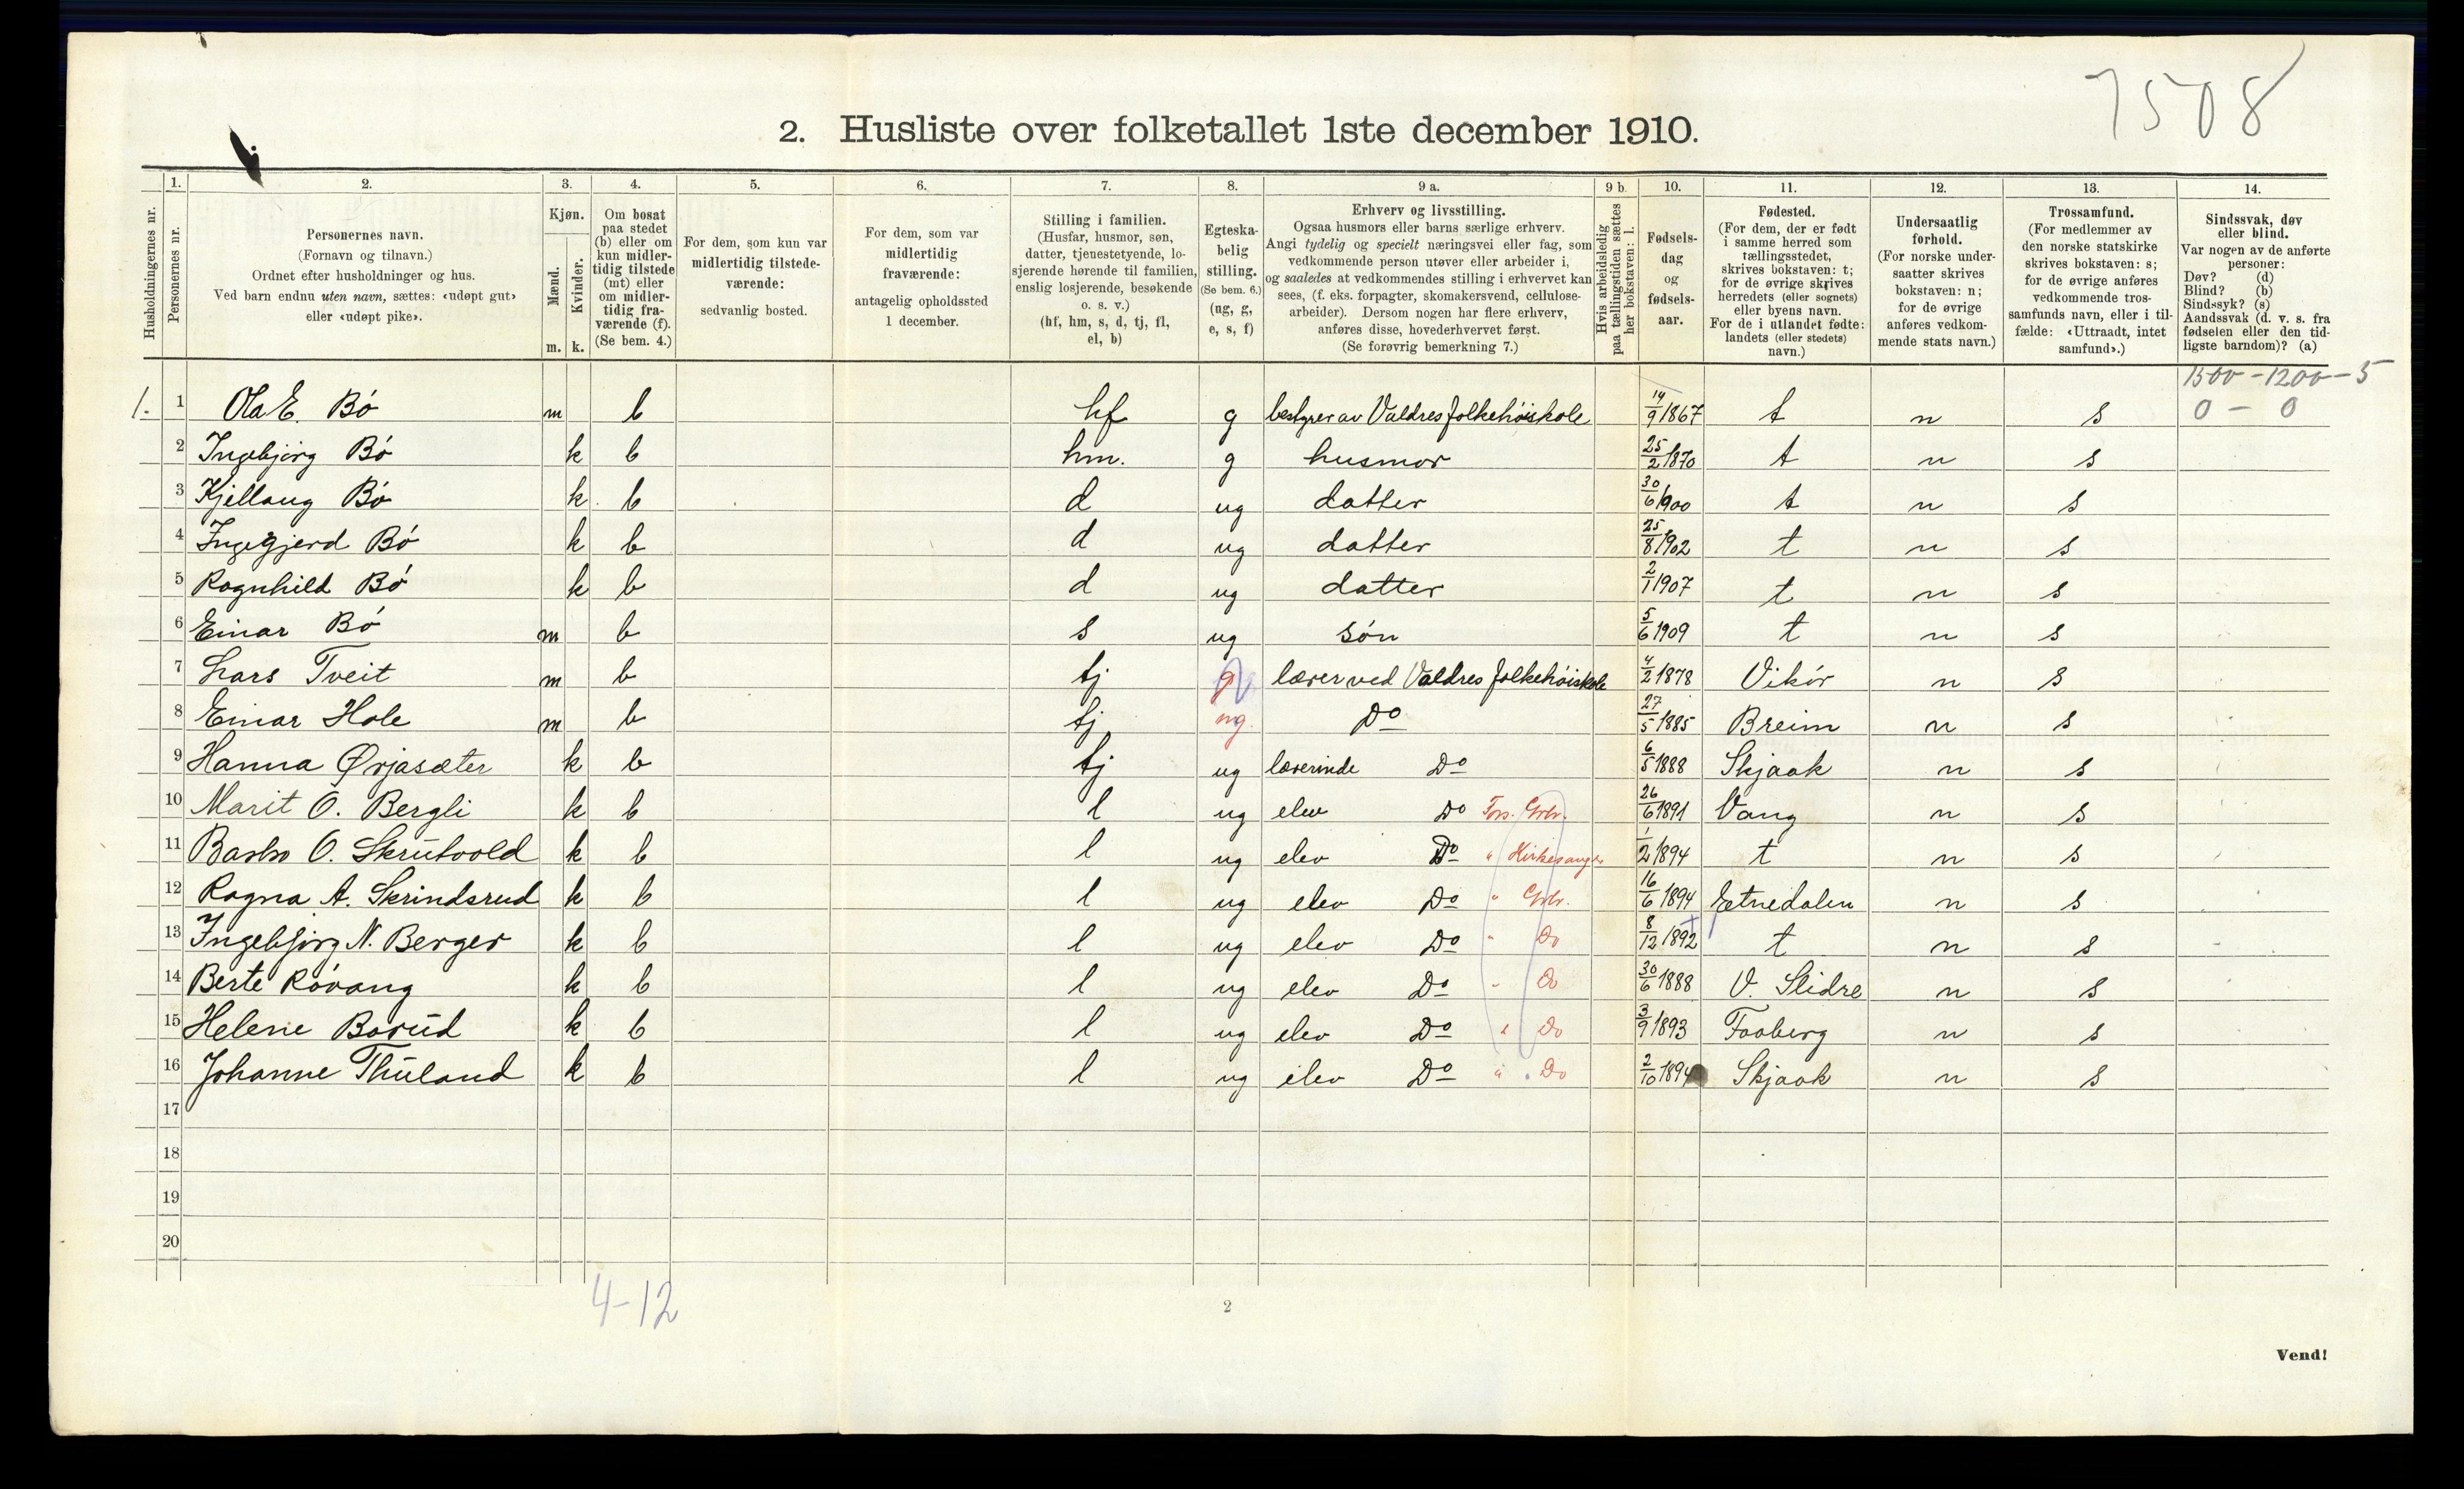 7508
2. Husliste over folketallet 1ste december 1910.
Husholdningernes nr.
1. Personernes nr.
2. Personernes navn. (Fornavn og tilnavn.) Ordnet efter husholdninger og hus. Ved barn endnu uten navn, sættes: «udøpt gut» eller «udøpt pike».
3. Kjøn. Mænd. m. Kvinder. k.
4. Om bosat paa stedet (b) eller om kun midlertidig tilstede (mt) eller om midlertidig fraværende (f). (Se bem. 4.)
5. For dem, som kun var midlertidig tilstedeværende: sedvanlig bosted.
6. For dem, som var midlertidig fraværende: antagelig opholdssted 1 december.
7. Stilling i familien. (Husfar, husmor, søn, datter, tjenestetyende, losjerende hørende til familien, enslig losjerende, besøkende o. s. v.) (hf, hm, s, d, tj, fl, el, b)
8. Egteskabelig stilling. (Se bem. 6.) (ug, g, e, s, f)
9 a. Erhverv og livsstilling. Ogsaa husmors eller barns særlige erhverv. Angi tydelig og specielt næringsvei eller fag, som vedkommende person utøver eller arbeider i, og saaledes at vedkommendes stilling i erhvervet kan sees, (f. eks. forpagter, skomakersvend, cellulosearbeider). Dersom nogen har flere erhverv, anføres disse, hovederhvervet først. (Se forøvrig bemerkning 7.)
9 b. Hvis arbeidsledig paa tællingstiden sættes her bokstaven: l.
10. Fødselsdag og fødselsaar.
11. Fødested. (For dem, der er født i samme herred som tællingsstedet, skrives bokstaven: t; for de øvrige skrives herredets (eller sognets) eller byens navn. For de i utlandet fødte: landets (eller stedets) navn.)
12. Undersaatlig forhold. (For norske undersaatter skrives bokstaven: n; for de øvrige anføres vedkommende stats navn.)
13. Trossamfund. (For medlemmer av den norske statskirke skrives bokstaven: s; for de øvrige anføres vedkommende trossamfunds navn, eller i tilfælde: «Uttraadt, intet samfund».)
14. Sindssvak, døv eller blind. Var nogen av de anførte personer: Døv? (d) Blind? (b) Sindssyk? (s) Aandssvak (d. v. s. fra fødselen eller den tidligste barndom)? (a)
1500-1200-5
1. 1 Ola E. Bø m b hf g bestyrer av Valdres folkehøiskole 14/9 1867 t n s 0 - 0
2 Ingebjørg Bø k b hm. g husmor 25/2 1870 t n s
3 Kjellaug Bø k b d ug datter 30/6 1900 t n s
4 Ingegjerd Bø k b d ug datter 25/8 1902 t n s
5 Ragnhild Bø k b d ug datter 2/1 1907 t n s
6 Einar Bø m b s ug søn 5/6 1909 t n s
7 Lars Tveit m b tj g lærer ved Valdres folkehøiskole 4/2 1878 Vikør n s
8 Einar Hole m b tj ug. Do 27/5 1885 Breim n s
9 Hanna Ørjasæter k b tj ug lærerinde Do 6/5 1888 Skjaak n s
10 Marit O. Bergli k b l ug elev Do Fors. Grbr. 26/6 1891 Vang n s
11 Barbo O. Skrutvold k b l ug elev Do " Kirkesanger 1/2 1894 t n s
12 Ragna A. Skrindsrud k b l ug elev Do " Grbr. 16/6 1894 Etnedalen n s
13 Ingebjørg N. Berger k b l ug elev Do " Do 8/12 1892 t n s
14 Berte Røvang k b l ug elev Do " Do 30/6 1888 V. Slidre n s
15 Helene Borud k b l ug elev Do " Do 3/9 1893 Faaberg n s
16 Johanne Thuland k b l ug elev Do " Do 2/10 1894 Skjaak n s
17
18
19
20
4-12
2
Vend!